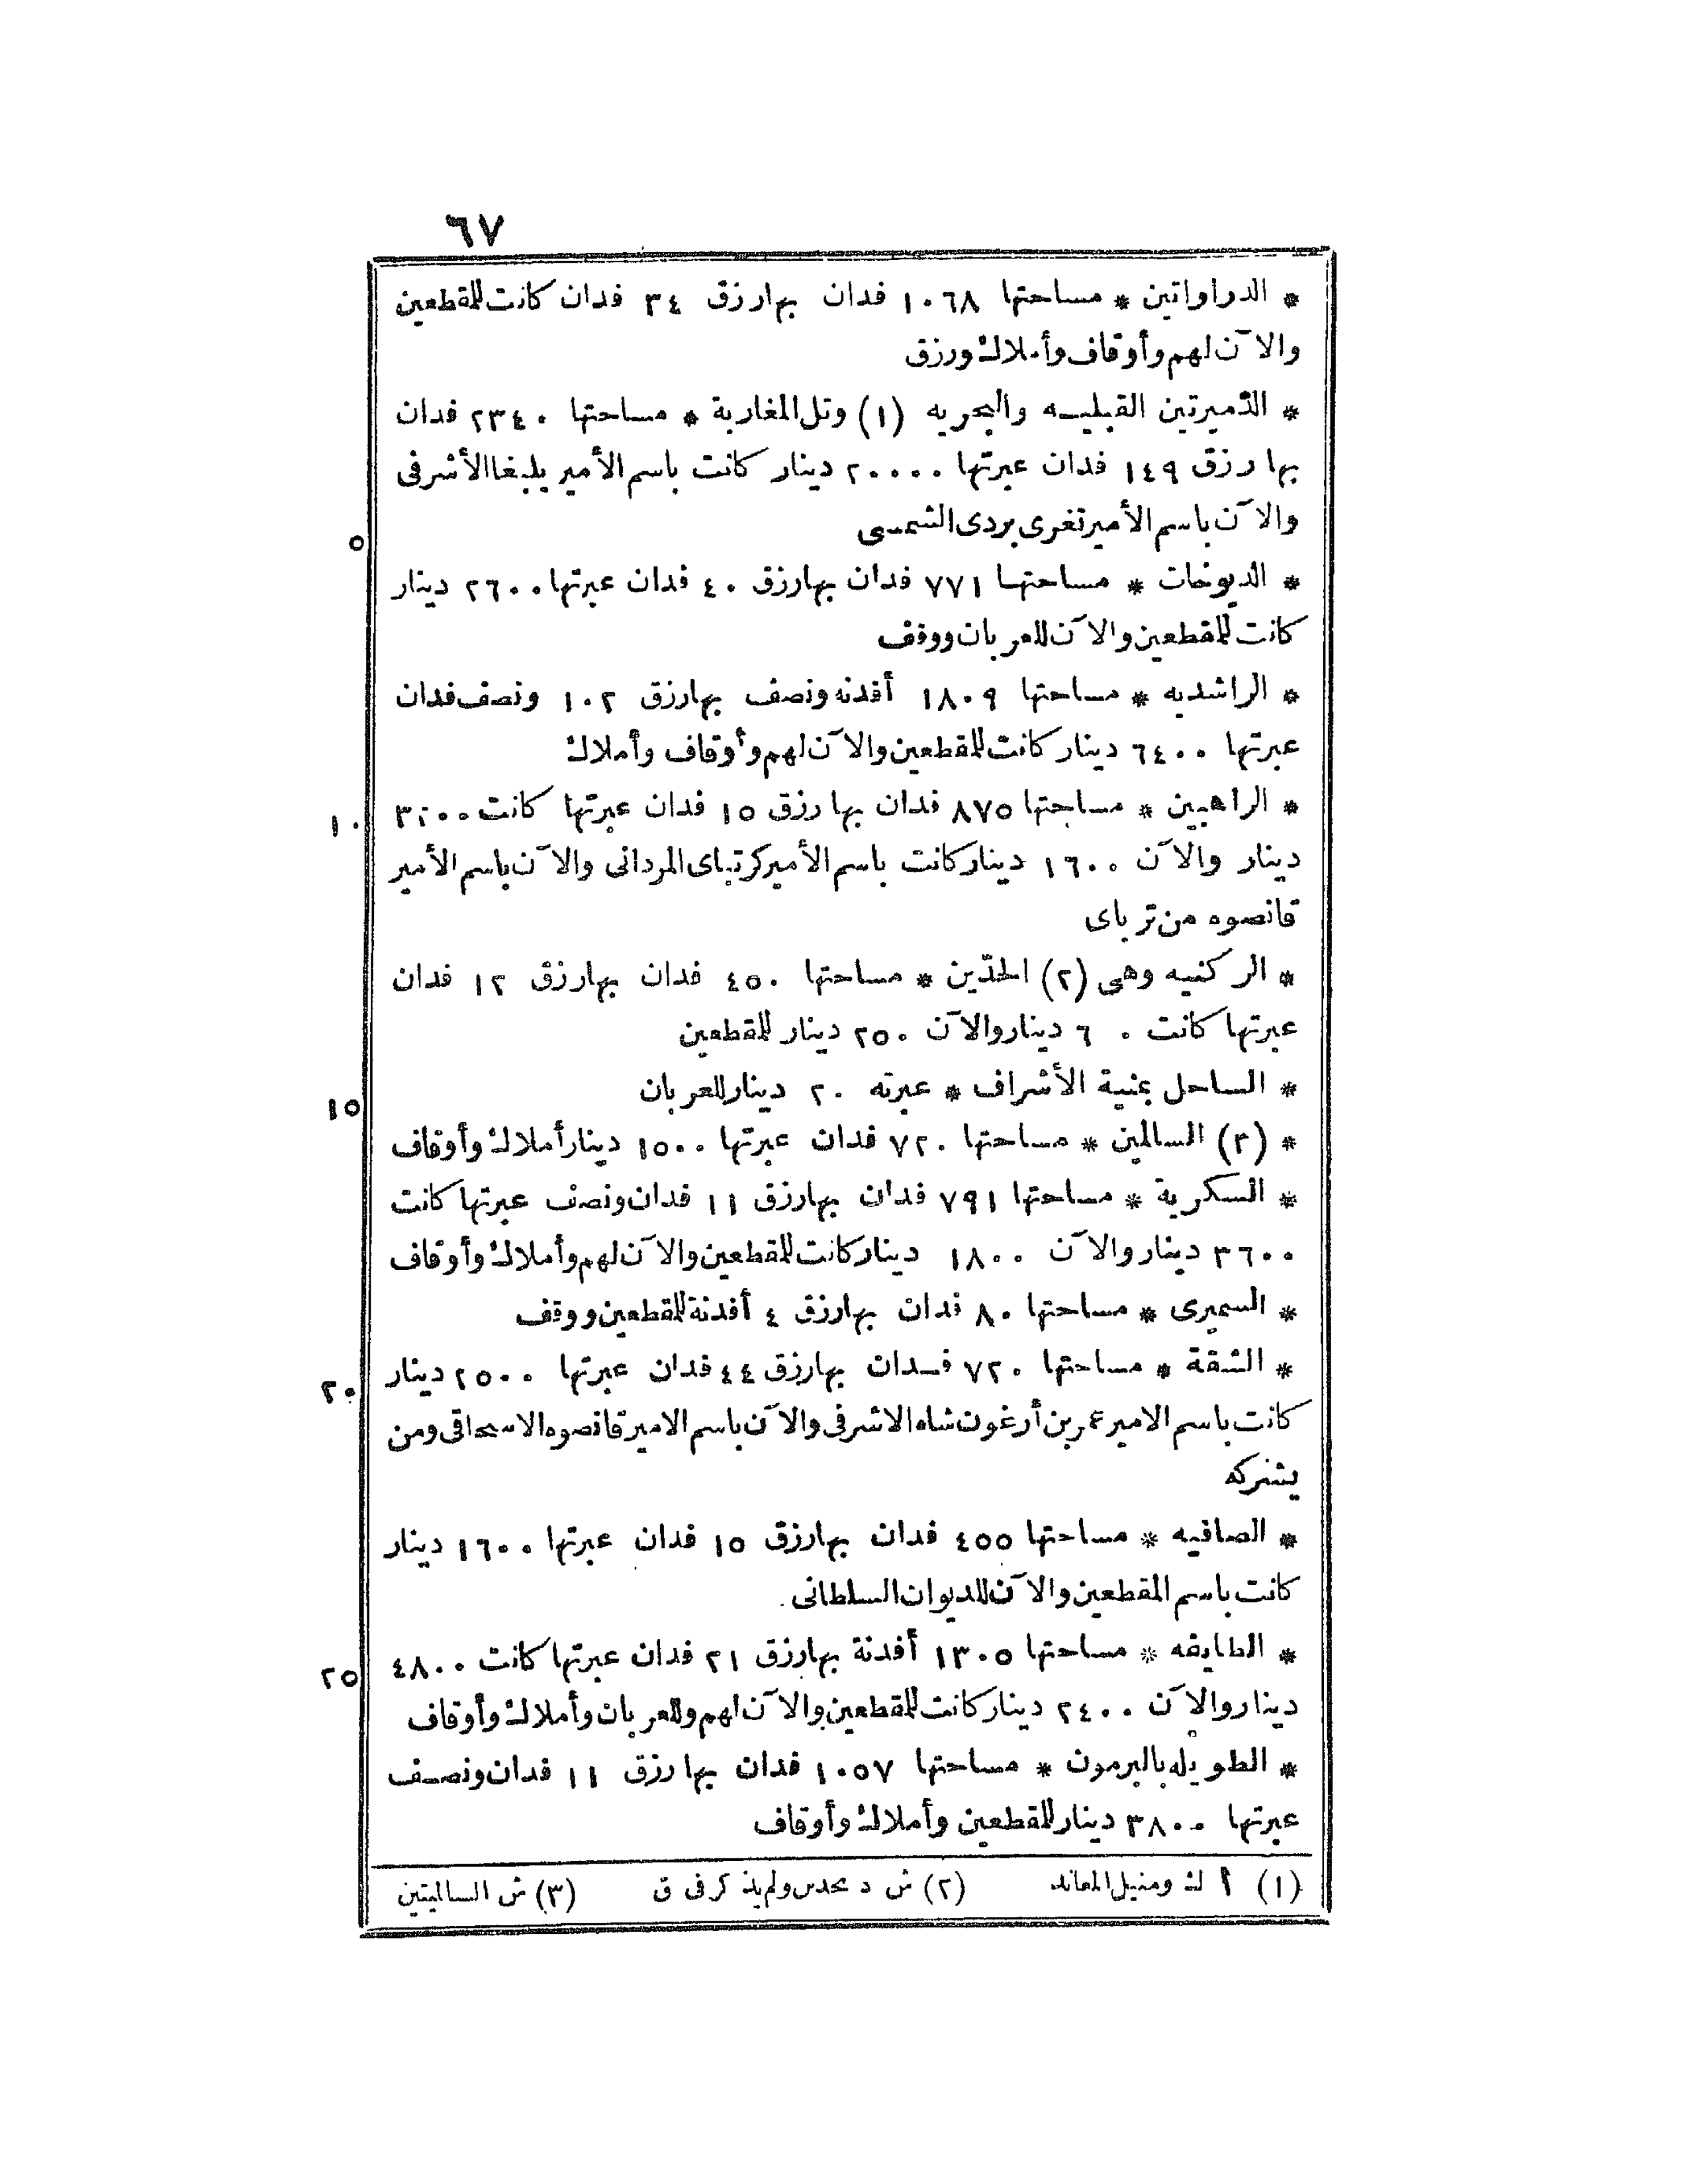 ٦٧
* الدواواتين * مساحتها ١٠٦٨ فدان بها رزق ٣٤ فدان كانت للمقطعين
والآن لهم وأوقاف وأملاك ورزق
* الدّميرتين القبليه والبحريه (١) وتل المغاربة * مساحتها ٢٣٤٠ فدان
بها رزق ١٤٩ فدان عبرتها ٢٠٠٠٠ دينار كانت باسم الأمير يلبغا الأشرفى
والآن باسم الأمير تغرى بردى الشمسى
٥
* الديوخات * مساحتها ٧٧١ فدان بها رزق ٤٠ فدان عبرتها ٢٦٠٠ دينار
كانت للمقطعين والآن للعربان ووقف
* الراشديه * مساحتها ١٨٠٩ أفدنه ونصف بها رزق ١٠٢ ونصف فدان
عبرتها ٦٤٠٠ دينار كانت للمقطعين والآن لهم وأوقاف وأملاك
* الراهبين * مساحتها ٨٧٥ فدان بها رزق ١٥ فدان عبرتها كانت ٣٢٠٠
١٠
دينار والآن ١٦٠٠ دينار كانت باسم الأمير كرتباى المردانى والآن باسم الأمير
قانصوه من تر باى
* الركنيه وهى (٢) الحدّين * مساحتها ٤٥٠ فدان بها رزق ١٢ فدان
عبرتها كانت ٦٠ دينار والآن ٢٥٠ دينار للمقطعين
* الساحل بمنية الأشراف * عبرته ٢٠ دينار للعربان
١٥
* (٣) السالمين * مساحتها ٧٢٠ فدان عبرتها ١٥٠٠ دينار أملاك وأوقاف
* السكرية * مساحتها ٧٩١ فدان بها رزق ١١ فدان ونصف عبرتها كانت
٣٦٠٠ دينار والآن ١٨٠٠ دينار كانت للمقطعين والآن لهم وأملاك وأوقاف
* السميرى * مساحتها ٨٠ فدان بها رزق ٤ أفدنة للمقطعين ووقف
* الشقة * مساحتها ٧٢٠ فدان بها رزق ٤٤ فدان عبرتها ٢٥٠٠ دينار
٢٠
كانت باسم الامير عمر بن أرغون شاه الاشرفى والآن باسم الامير قانصوه الاسحاقى ومن
يشركه
* الصافيه * مساحتها ٤٥٥ فدان بها رزق ١٥ فدان عبرتها ١٦٠٠ دينار
كانت باسم المقطعين والآن للديوان السلطانى
* الطايفه * مساحتها ١٣٠٥ أفدنة بها رزق ٢١ فدان عبرتها كانت ٤٨٠٠
٢٥
دينار والآن ٢٤٠٠ دينار كانت للمقطعين والآن لهم وللعربان وأملاك وأوقاف
* الطويله بالبرمون * مساحتها ١٠٥٧ فدان بها رزق ١١ فدان ونصف
عبرتها ٣٨٠٠ دينار للمقطعين وأملاك وأوقاف
(١) ا ك ومنيل المعانه (٢) ش د محدس ولم يذكر فى ق (٣) ش السالميتين